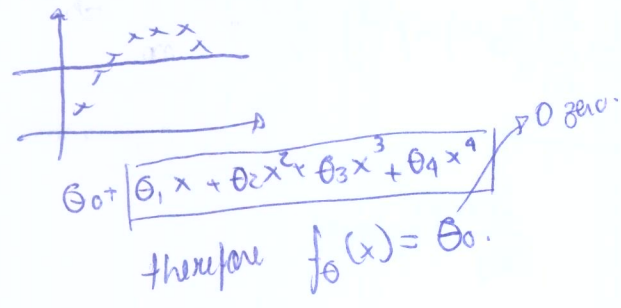 θ₀ + θ₁x + θ₂x² + θ₃x³ + θ₄x⁴ → 0 zero.
therefore f_θ(x) = θ₀.